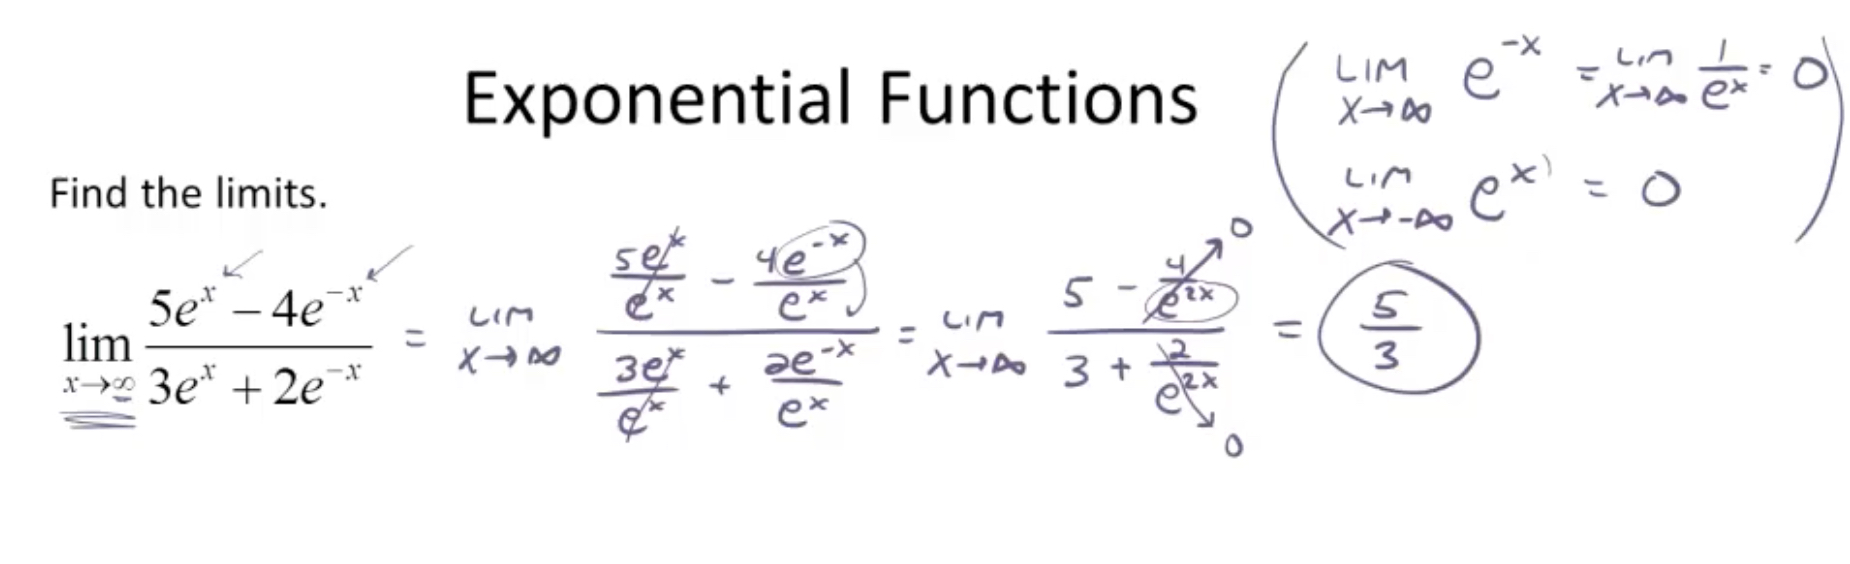 Exponential Functions
( LIM x→∞ e^{-x} = LIM x→∞ 1/e^x = 0
LIM x→-∞ e^x = 0 )
Find the limits.
lim x→∞ (5e^x − 4e^{−x})/(3e^x + 2e^{−x}) = LIM x→∞ (5e^x/e^x − 4e^{-x}/e^x)/(3e^x/e^x + 2e^{-x}/e^x) = LIM x→∞ (5 − 4/e^{2x} → 0)/(3 + 2/e^{2x} → 0) = 5/3